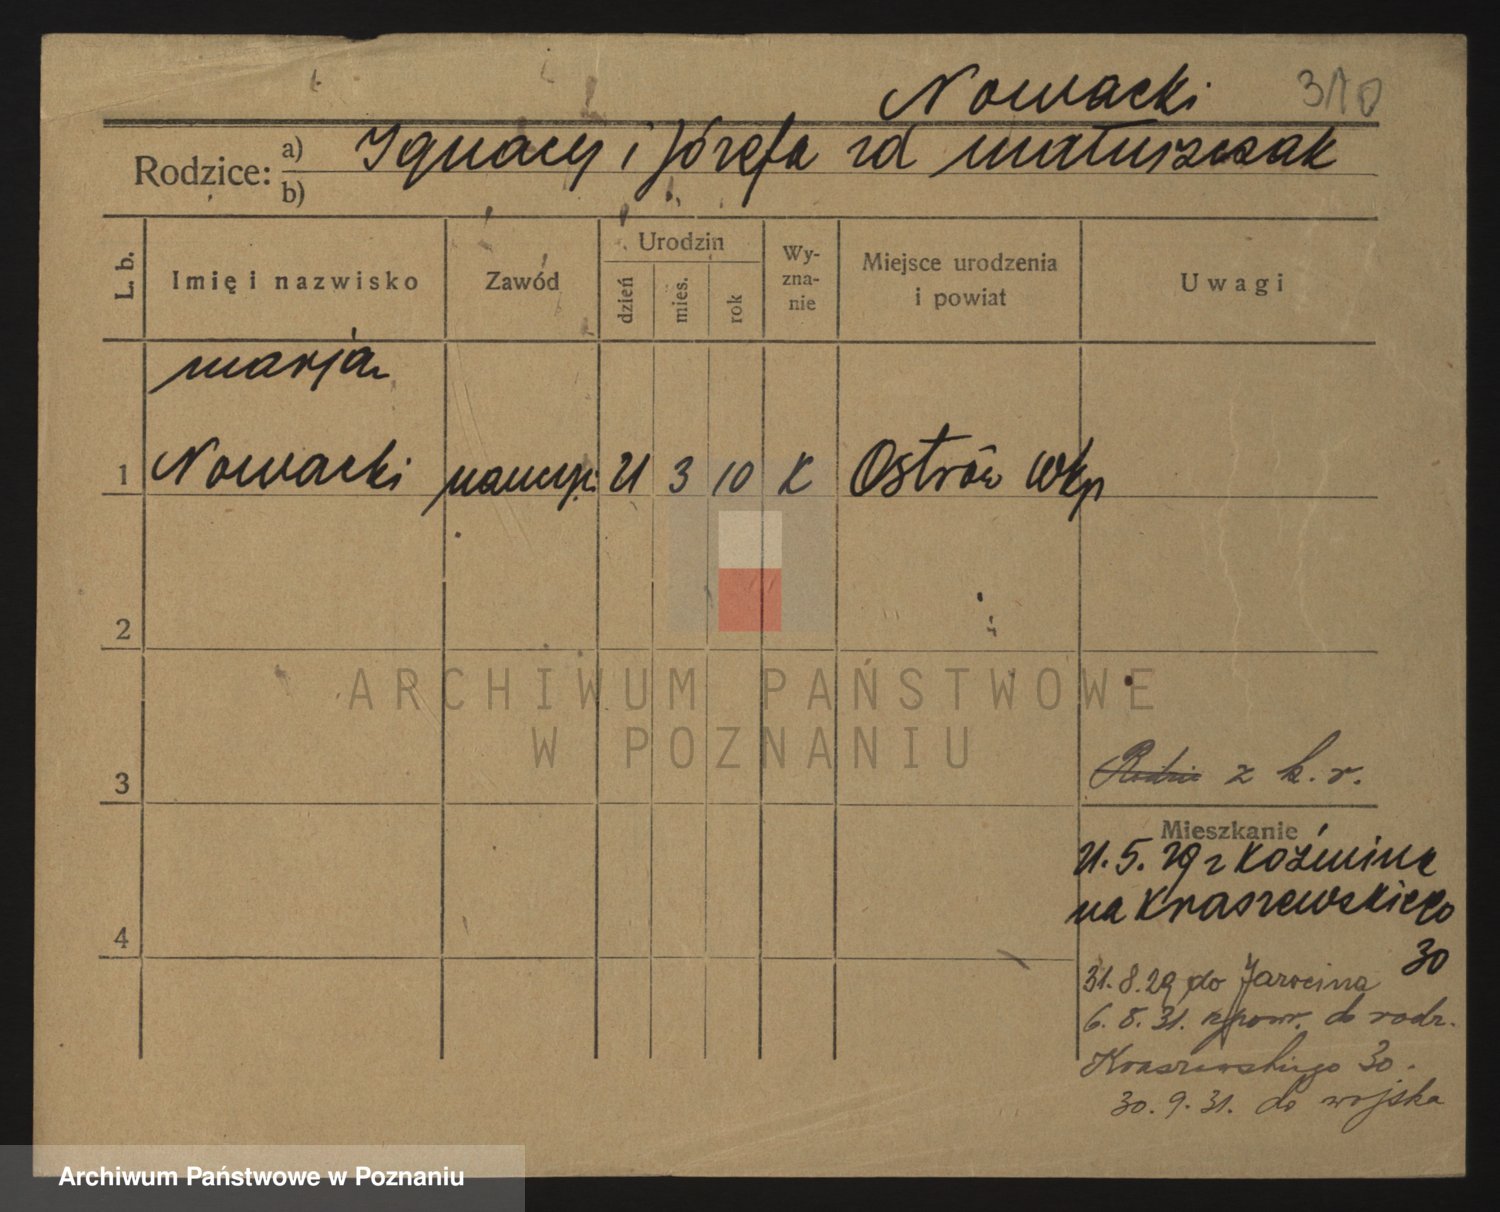 Nowacki 310
Rodzice: a) Ignacy i Józefa zd Matuszczak
b)
L. b. Imię i nazwisko Zawód Urodzin Wy-zna-nie Miejsce urodzenia i powiat Uwagi
dzień mies. rok
Marja
1 Nowacki 21 3 10 K Ostrów Wkp
2
ARCHIWUM PAŃSTWOWE
W POZNANIU
3 z k. r.
Mieszkanie
21. 5. 29 z Koźmina
na Kraszewskiego
4 30
31. 8. 29 do Jarocina
6. 8. 31. z pow. do rodz.
Kraszewskiego 30.
30. 9. 31. do wojska
Archiwum Państwowe w Poznaniu